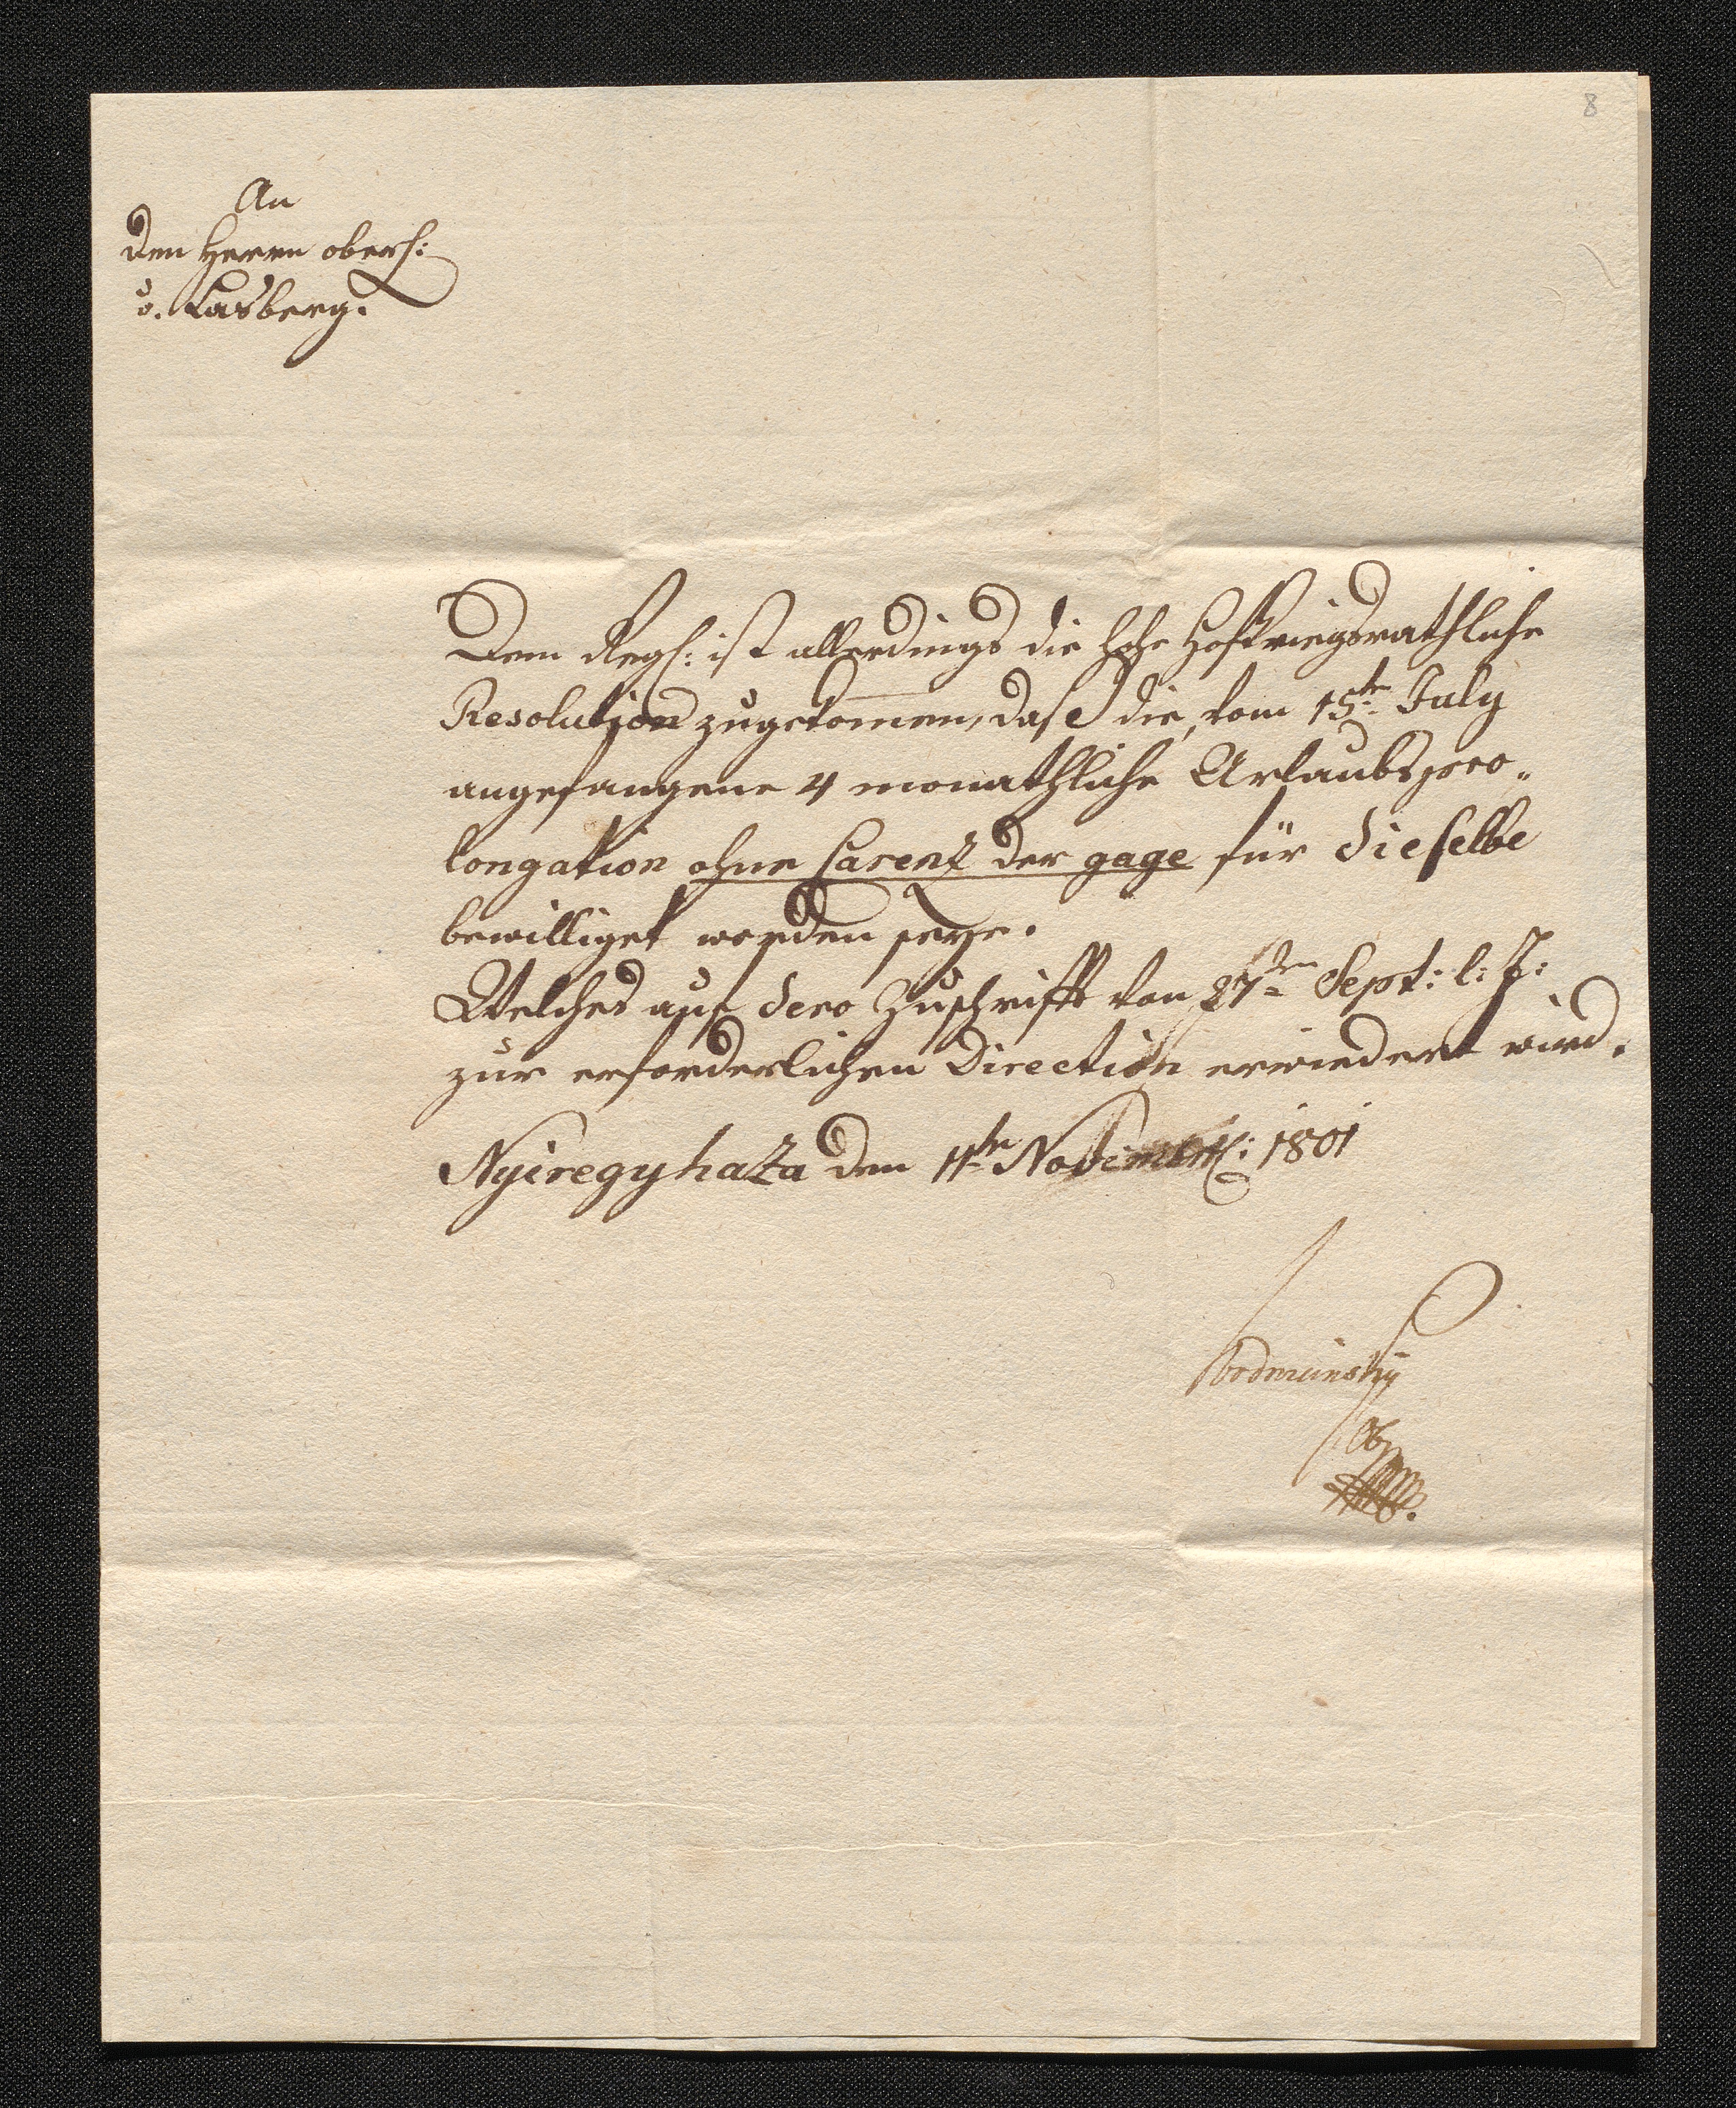 8
An
den Herrn obers:
v. Lasberg.
Dem Reg: ist allerdings die hohe Hofkriegsrathliche
Resolution zugekom̅en, dass die, vom 15ten July
angefangene 4 monathliche Urlaubs pro„
longation ohne Carenz der gage für dieselbe
bewilliget worden seye.
Welches auf dero Zuschrifft von 27ten Sept: l: J:
zur erforderlichen Direction erwiedert wird.
Nyiregyhaza den 11ten Novembr: 1801
Ob